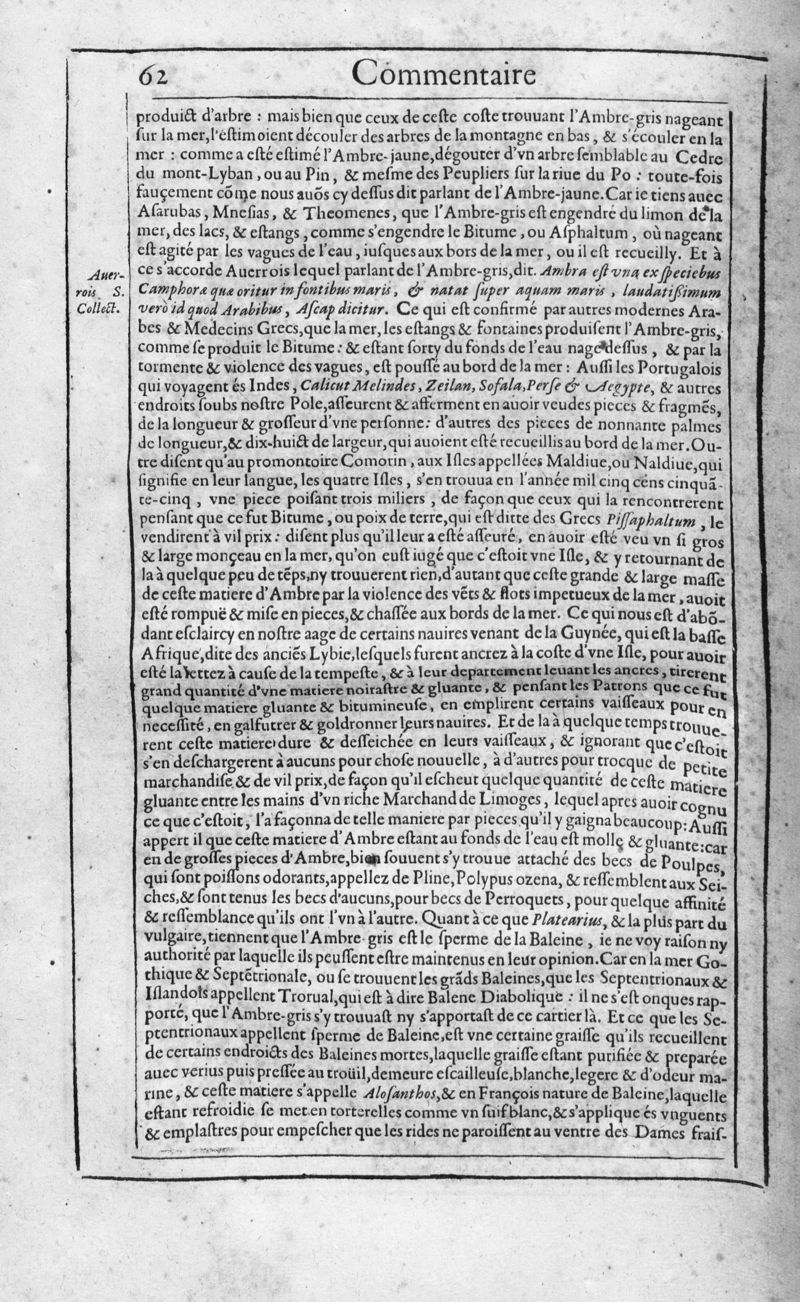 62 Commentaire
produict d'arbre : mais bien que ceux de ceste coste trouuant l'Ambre-gris nageant
sur la mer, l'estimoient découler des arbres de la montagne en bas, & s'écouler en la
mer : comme a esté estimé l'Ambre-jaune, dégouter d'vn arbre semblable au Cedre
du mont-Lyban, ou au Pin, & mesme des Peupliers sur la riue du Po : toute-fois
fauçement cõme nous auõs cy dessus dit parlant de l'Ambre-jaune. Car ie tiens auec
Asarubas, Mnesias, & Theomenes, que l'Ambre-gris est engendré du limon de la
mer, des lacs, & estangs, comme s'engendre le Bitume, ou Asphaltum, où nageant
est agité par les vagues de l'eau, iusques aux bors de la mer, ou il est recueilly. Et à
Auer-
rois S.
Collect.
ce s'accorde Auerrois lequel parlant de l'Ambre-gris, dit. Ambra est vna ex speciebus
Camphoræ quæ oritur in fontibus maris, & natat super aquam maris, laudatißimum
verò id quod Arabibus, Ascap dicitur. Ce qui est confirmé par autres modernes Ara-
bes & Medecins Grecs, que la mer, les estangs & fontaines produisent l'Ambre-gris,
comme se produit le Bitume : & estant sorty du fonds de l'eau nage dessus, & par la
tormente & violence des vagues, est poussé au bord de la mer : Aussi les Portugalois
qui voyagent és Indes, Calicut Melindes, Zeilan, Sofala, Perse & Aegypte, & autres
endroits soubs nostre Pole, asseurent & afferment en auoir veu des pieces & fragmẽs,
de la longueur & grosseur d'vne personne : d'autres des pieces de nonnante palmes
de longueur, & dix-huict de largeur, qui auoient esté recueillis au bord de la mer. Ou-
tre disent qu'au promontoire Comorin, aux Isles appellées Maldiue, ou Naldiue, qui
signifie en leur langue, les quatre Isles, s'en trouua en l'année mil cinq cens cinquã-
te-cinq, vne piece poisant trois miliers, de façon que ceux qui la rencontrerent
pensant que ce fut Bitume, ou poix de terre, qui est ditte des Grecs Pissaphaltum, le
vendirent à vil prix : disent plus qu'il leur a esté asseuré, en auoir esté veu vn si gros
& large monçeau en la mer, qu'on eust iugé que c'estoit vne Isle, & y retournant de
la à quelque peu de tẽps, ny trouuerent rien, d'autant que ceste grande & large masse
de ceste matiere d'Ambre par la violence des vẽts & flots impetueux de la mer, auoit
esté rompuë & mise en pieces, & chassée aux bords de la mer. Ce qui nous est d'abõ-
dant esclaircy en nostre aage de certains nauires venant de la Guynée, qui est la basse
Afrique, dite des anciẽs Lybie, lesquels furent ancrez à la coste d'vne Isle, pour auoir
esté la iettez à cause de la tempeste, & à leur departement leuant les ancres, tirerent
grand quantité d'vne matiere noirastre & gluante, & pensant les Patrons que ce fut
quelque matiere gluante & bitumineuse, en emplirent certains vaisseaux pour en
necessité, en galfutrer & goldronner leurs nauires. Et de la à quelque temps trouue-
rent ceste matiere dure & desseichée en leurs vaisseaux, & ignorant que c'estoit
s'en deschargerent à aucuns pour chose nouuelle, à d'autres pour trocque de petite
marchandise & de vil prix, de façon qu'il escheut quelque quantité de ceste matiere
gluante entre les mains d'vn riche Marchand de Limoges, lequel apres auoir cognu
ce que c'estoit, l'a façonna de telle maniere par pieces qu'il y gaigna beaucoup : Aussi
appert il que ceste matiere d'Ambre estant au fonds de l'eau est molle & gluante : car
en de grosses pieces d'Ambre, bien souuent s'y trouue attaché des becs de Poulpes,
qui sont poissons odorants, appellez de Pline, Polypus ozena, & ressemblent aux Sei-
ches, & sont tenus les becs d'aucuns, pour becs de Perroquets, pour quelque affinité
& ressemblance qu'ils ont l'vn à l'autre. Quant à ce que Platearius, & la plus part du
vulgaire, tiennent que l'Ambre gris est le sperme de la Baleine, ie ne voy raison ny
authorité par laquelle ils peussent estre maintenus en leur opinion. Car en la mer Go-
thique & Septẽtrionale, ou se trouuent les grãds Baleines, que les Septentrionaux &
Islandois appellent Trorual, qui est à dire Balene Diabolique : il ne s'est onques rap-
porté, que l'Ambre-gris s'y trouuast ny s'apportast de ce cartier là. Et ce que les Se-
ptentrionaux appellent sperme de Baleine, est vne certaine graisse qu'ils recueillent
de certains endroicts des Baleines mortes, laquelle graisse estant purifiée & preparée
auec verius puis pressée au troüil, demeure escailleuse, blanche, legere & d'odeur ma-
rine, & ceste matiere s'appelle Alosanthos, & en François nature de Baleine, laquelle
estant refroidie se met en torterelles comme vn suif blanc, & s'applique és vnguents
& emplastres pour empescher que les rides ne paroissent au ventre des Dames frais-